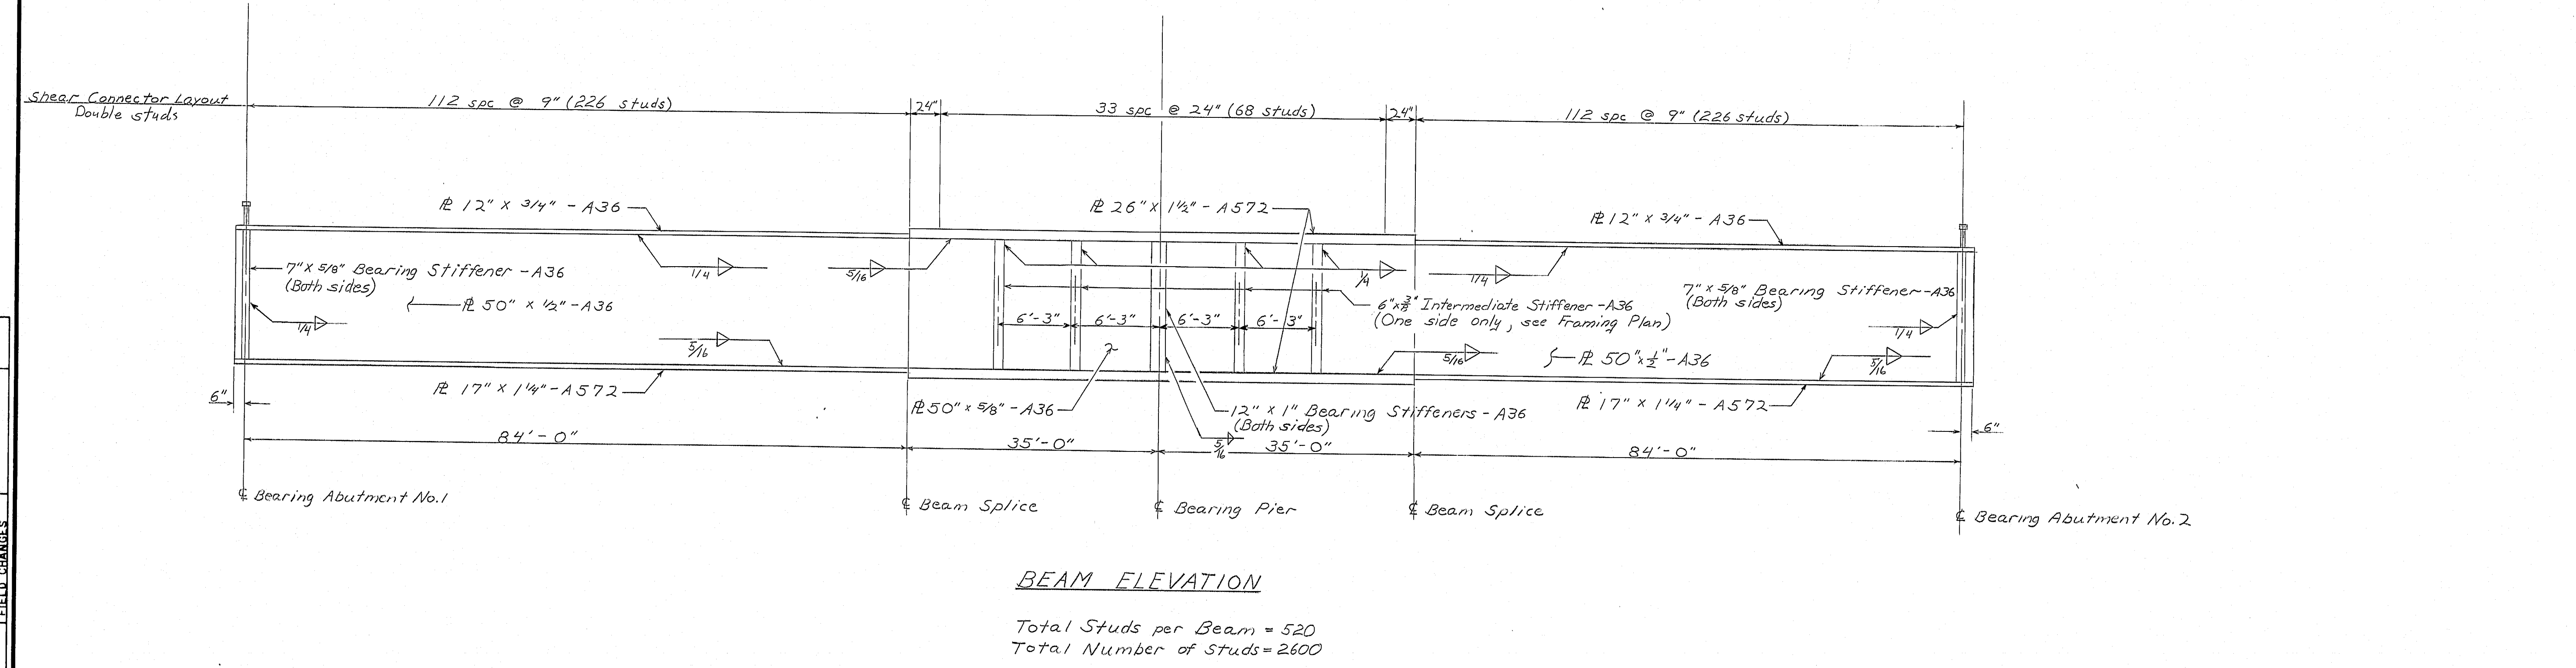 Shear Connector Layout
Double studs
112 spc @ 9" (226 studs)
24"
33 spc @ 24" (68 studs)
24"
112 spc @ 9" (226 studs)
℄ 12" x 3/4" - A36
℄ 26" x 1½" - A572
℄ 12" x 3/4" - A36
7" x 5/8" Bearing Stiffener - A36
(Both sides)
1/4
5/16
1/4
1/4
7" x 5/8" Bearing Stiffener - A36
(Both sides)
℄ 50" x ½" - A36
6" x 3/8" Intermediate Stiffener - A36
(One side only, see Framing Plan)
1/4
6'-3"
6'-3"
6'-3"
6'-3"
1/4
5/16
5/16
℄ 50" x ½" - A36
5/16
℄ 17" x 1¼" - A572
℄ 50" x 5/8" - A36
12" x 1" Bearing Stiffeners - A36
(Both sides)
5/16
℄ 17" x 1¼" - A572
6"
6"
84'-0"
35'-0"
35'-0"
84'-0"
℄ Bearing Abutment No.1
℄ Beam Splice
℄ Bearing Pier
℄ Beam Splice
℄ Bearing Abutment No.2
BEAM ELEVATION
Total Studs per Beam = 520
Total Number of Studs = 2600
FIELD CHANGES